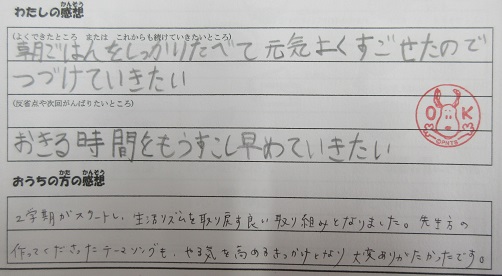 わたしの感想
(よくできたところ または これからも続けていきたいところ)
朝ごはんをしっかりたべて元気よくすごせたので
つづけていきたい
(反省点や次回がんばりたいところ)
おきる時間をもうすこし早めていきたい
OK
おうちの方の感想
2学期がスタートし、生活リズムを取り戻す良い取り組みとなりました。先生方の
作ってくださったテーマソングも、やる気を高めるきっかけとなり大変ありがたかったです。